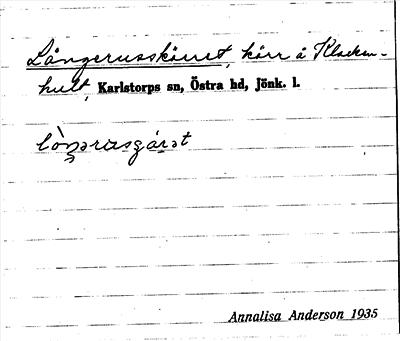 Långerusskärret, kärr å Klocken-
hult, Karlstorps sn, Östra hd, Jönk. l.
Annalisa Anderson 1935